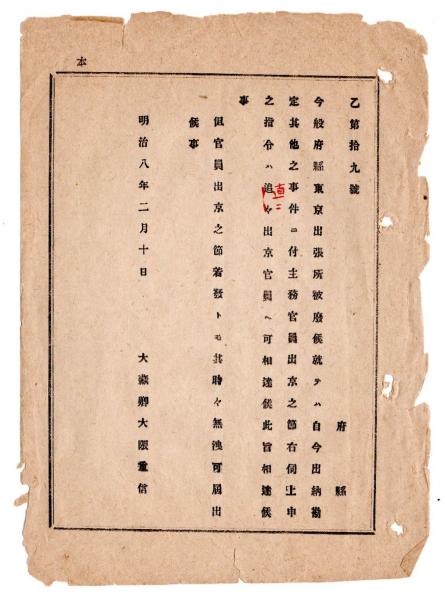 本
乙第拾九號
府縣
今般府縣東京出張所被廢候就テハ自今出納勘
定其他之事件ニ付主務官員出京之節右伺上申
之指令ハ追々出京官員ヘ可相達候此旨相達候
直ニ
事
但官員出京之節着發トモ其時々無洩可届出
候事
明治八年二月十日
大藏卿大隈重信